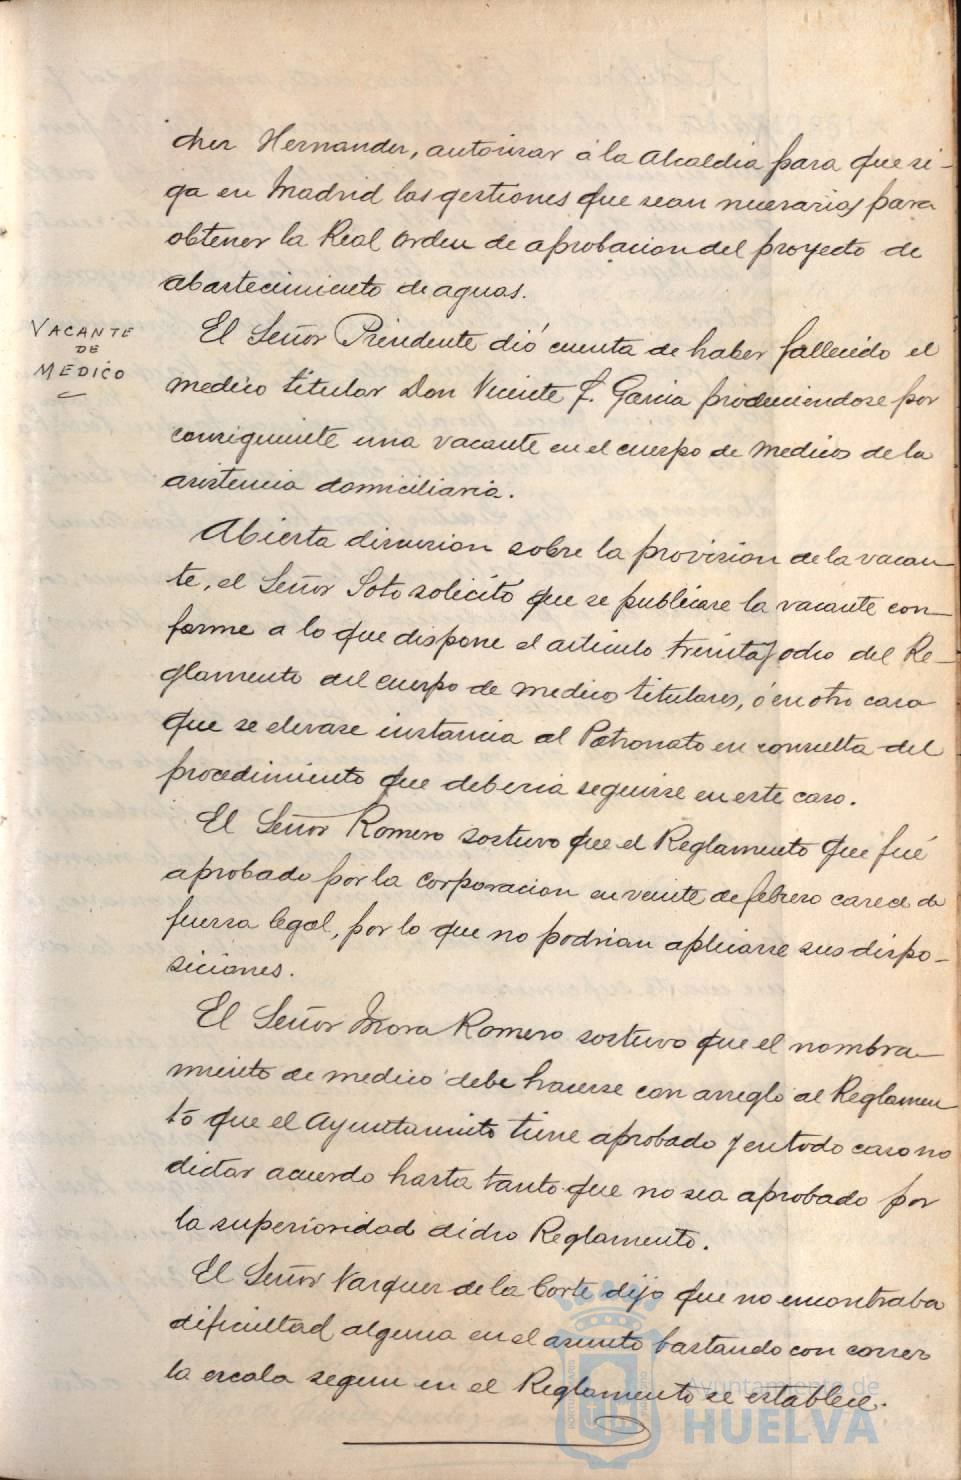 chez Hernandez, autorizar á la Alcaldia para que si-
ga en Madrid las gestiones que sean necesarias para
obtener la Real orden de aprobacion del proyecto de
abastecimiento de aguas.
VACANTE
DE
MEDICO
El Señor Presidente dió cuenta de haber fallecido el
medico titular Don Vicente F. Garcia produciendose por
consiguiente una vacante en el cuerpo de medicos de la
asistencia domiciliaria.
Abierta discusion sobre la provision de la vacan-
te, el Señor Soto solicitó que se publicase la vacante con-
forme a lo que dispone el articulo treinta y ocho del Re-
glamento del cuerpo de medicos titulares, ó en otro caso
que se elevase instancia al Patronato en consulta del
procedimiento que deberia seguirse en este caso.
El Señor Romero sostuvo que el Reglamento que fué
aprobado por la corporacion en veinte de febrero carece de
fuerza legal, por lo que no podrian aplicarse sus dispo-
siciones.
El Señor Mora Romero sostuvo que el nombra-
miento de medico debe hacerse con arreglo al Reglamen
to que el Ayuntamiento tiene aprobado y en todo caso no
dictar acuerdo hasta tanto que no sea aprobado por
la superioridad dicho Reglamento.
El Señor Vazquez de la Corte dijo que no encontraba
dificultad alguna en el asunto bastando con correr
la escala segun en el Reglamento se establece.
Ayuntamiento de
HUELVA